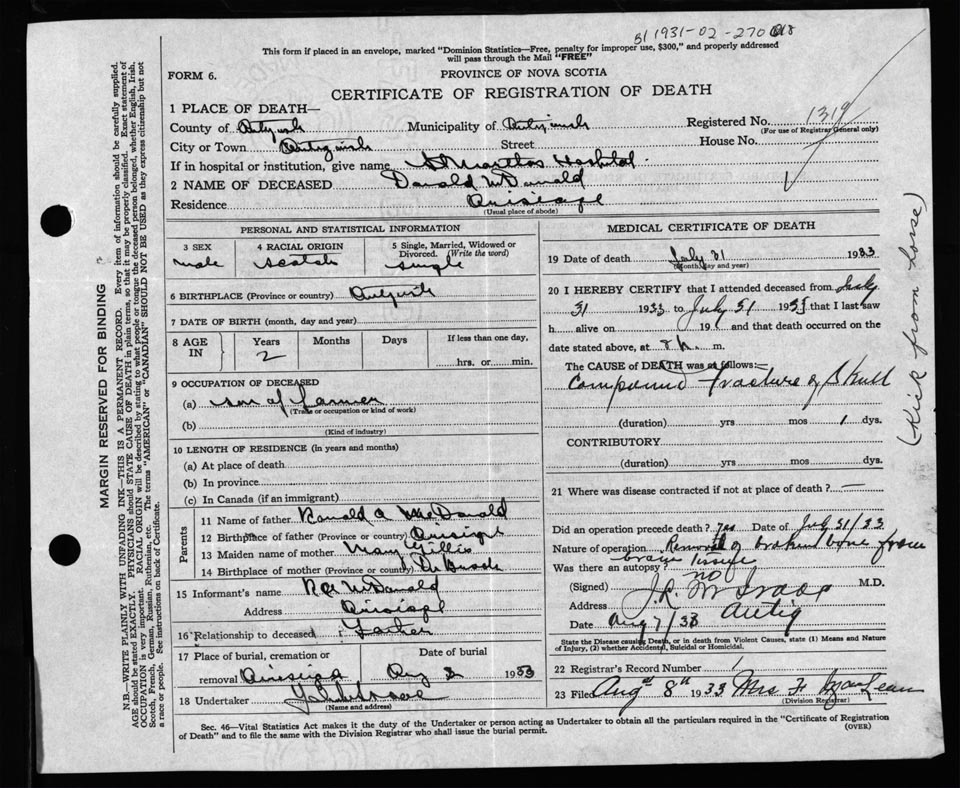 1931-02-270
This form if placed in an envelope, marked "Dominion Statistics—Free, penalty for improper use, $300," and properly addressed
will pass through the Mail "FREE"
FORM 6.
PROVINCE OF NOVA SCOTIA
CERTIFICATE OF REGISTRATION OF DEATH
1 PLACE OF DEATH—
Registered No. 1319
(For use of Registrar General only)
County of Antigonish Municipality of Antigonish
City or Town Antigonish Street House No.
If in hospital or institution, give name St Marthas Hospital
2 NAME OF DECEASED Donald McDonald
Residence Arisaig
(Usual place of abode)
PERSONAL AND STATISTICAL INFORMATION
3 SEX 4 RACIAL ORIGIN 5 Single, Married, Widowed or Divorced. (Write the word)
male Scotch single
6 BIRTHPLACE (Province or country)
7 DATE OF BIRTH (month, day and year)
8 AGE IN Years Months Days If less than one day,
2
hrs. or min.
9 OCCUPATION OF DECEASED
(a) son of farmer
(Trade or occupation or kind of work)
(b)
(Kind of industry)
10 LENGTH OF RESIDENCE (in years and months)
(a) At place of death
(b) In province
(c) In Canada (if an immigrant)
Parents
11 Name of father Ronald A McDonald
12 Birthplace of father (Province or country) Arisaig
13 Maiden name of mother Mary Gillis
14 Birthplace of mother (Province or country) Brook
15 Informant's name R A McDonald
Address Arisaig
16 Relationship to deceased Father
17 Place of burial, cremation or Date of burial
removal Arisaig Aug 2 1933
18 Undertaker
(Name and address)
MEDICAL CERTIFICATE OF DEATH
19 Date of death July 31 1933
(Month, day and year)
20 I HEREBY CERTIFY that I attended deceased from July
31 1933 to July 31 1933 that I last saw
h alive on 19 and that death occurred on
date stated above, at m.
The CAUSE of DEATH was as follows:
Compound fracture of Skull
(duration) yrs mos 1 dys.
CONTRIBUTORY
(duration) yrs mos dys.
21 Where was disease contracted if not at place of death? —
Did an operation precede death? yes Date of July 31/33
Nature of operation Removal of broken bone from
brain tissue
Was there an autopsy? no
(Signed) J.R. M.D.
Address Antig
Date Aug 7/33
State the Disease causing Death, or in death from Violent Causes, state (1) Means and Nature
of Injury, (2) whether Accidental, Suicidal or Homicidal.
22 Registrar's Record Number 1
23 Filed Augst 8th 1933 Mrs F MacLean
(Division Registrar)
Sec. 46—Vital Statistics Act makes it the duty of the Undertaker or person acting as Undertaker to obtain all the particulars required in the "Certificate of Registration
of Death" and to file the same with the Division Registrar who shall issue the burial permit.
(OVER)
(Kick from horse)
MARGIN RESERVED FOR BINDING
N.B.—WRITE PLAINLY WITH UNFADING INK—THIS IS A PERMANENT RECORD. Every item of information should be carefully supplied.
AGE should be stated EXACTLY. PHYSICIANS should STATE CAUSE OF DEATH in plain terms, so that it may be properly classified. Exact statement of
OCCUPATION is very important. RACIAL ORIGIN will be described by stating to what people or tongue the deceased person belonged, whether English, Irish,
Scotch, French, German, Russian, Ruthenian, etc. The terms "AMERICAN" or "CANADIAN" SHOULD NOT BE USED as they express citizenship but not
a race or people. See instructions on back of Certificate.